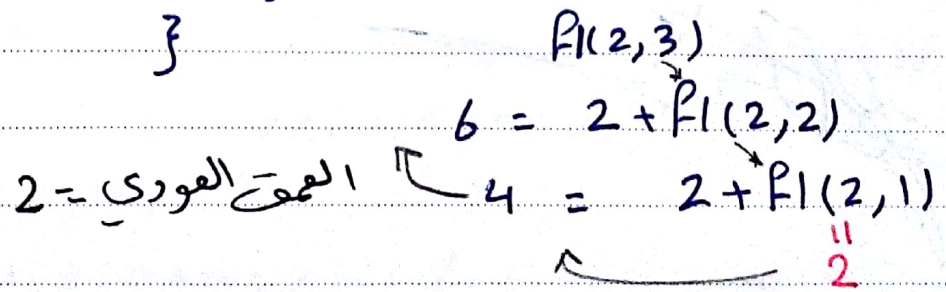 }
f1(2,3)
6 = 2 + f1(2,2)
العمق العودي = 2
4 = 2 + f1(2,1)
=
2